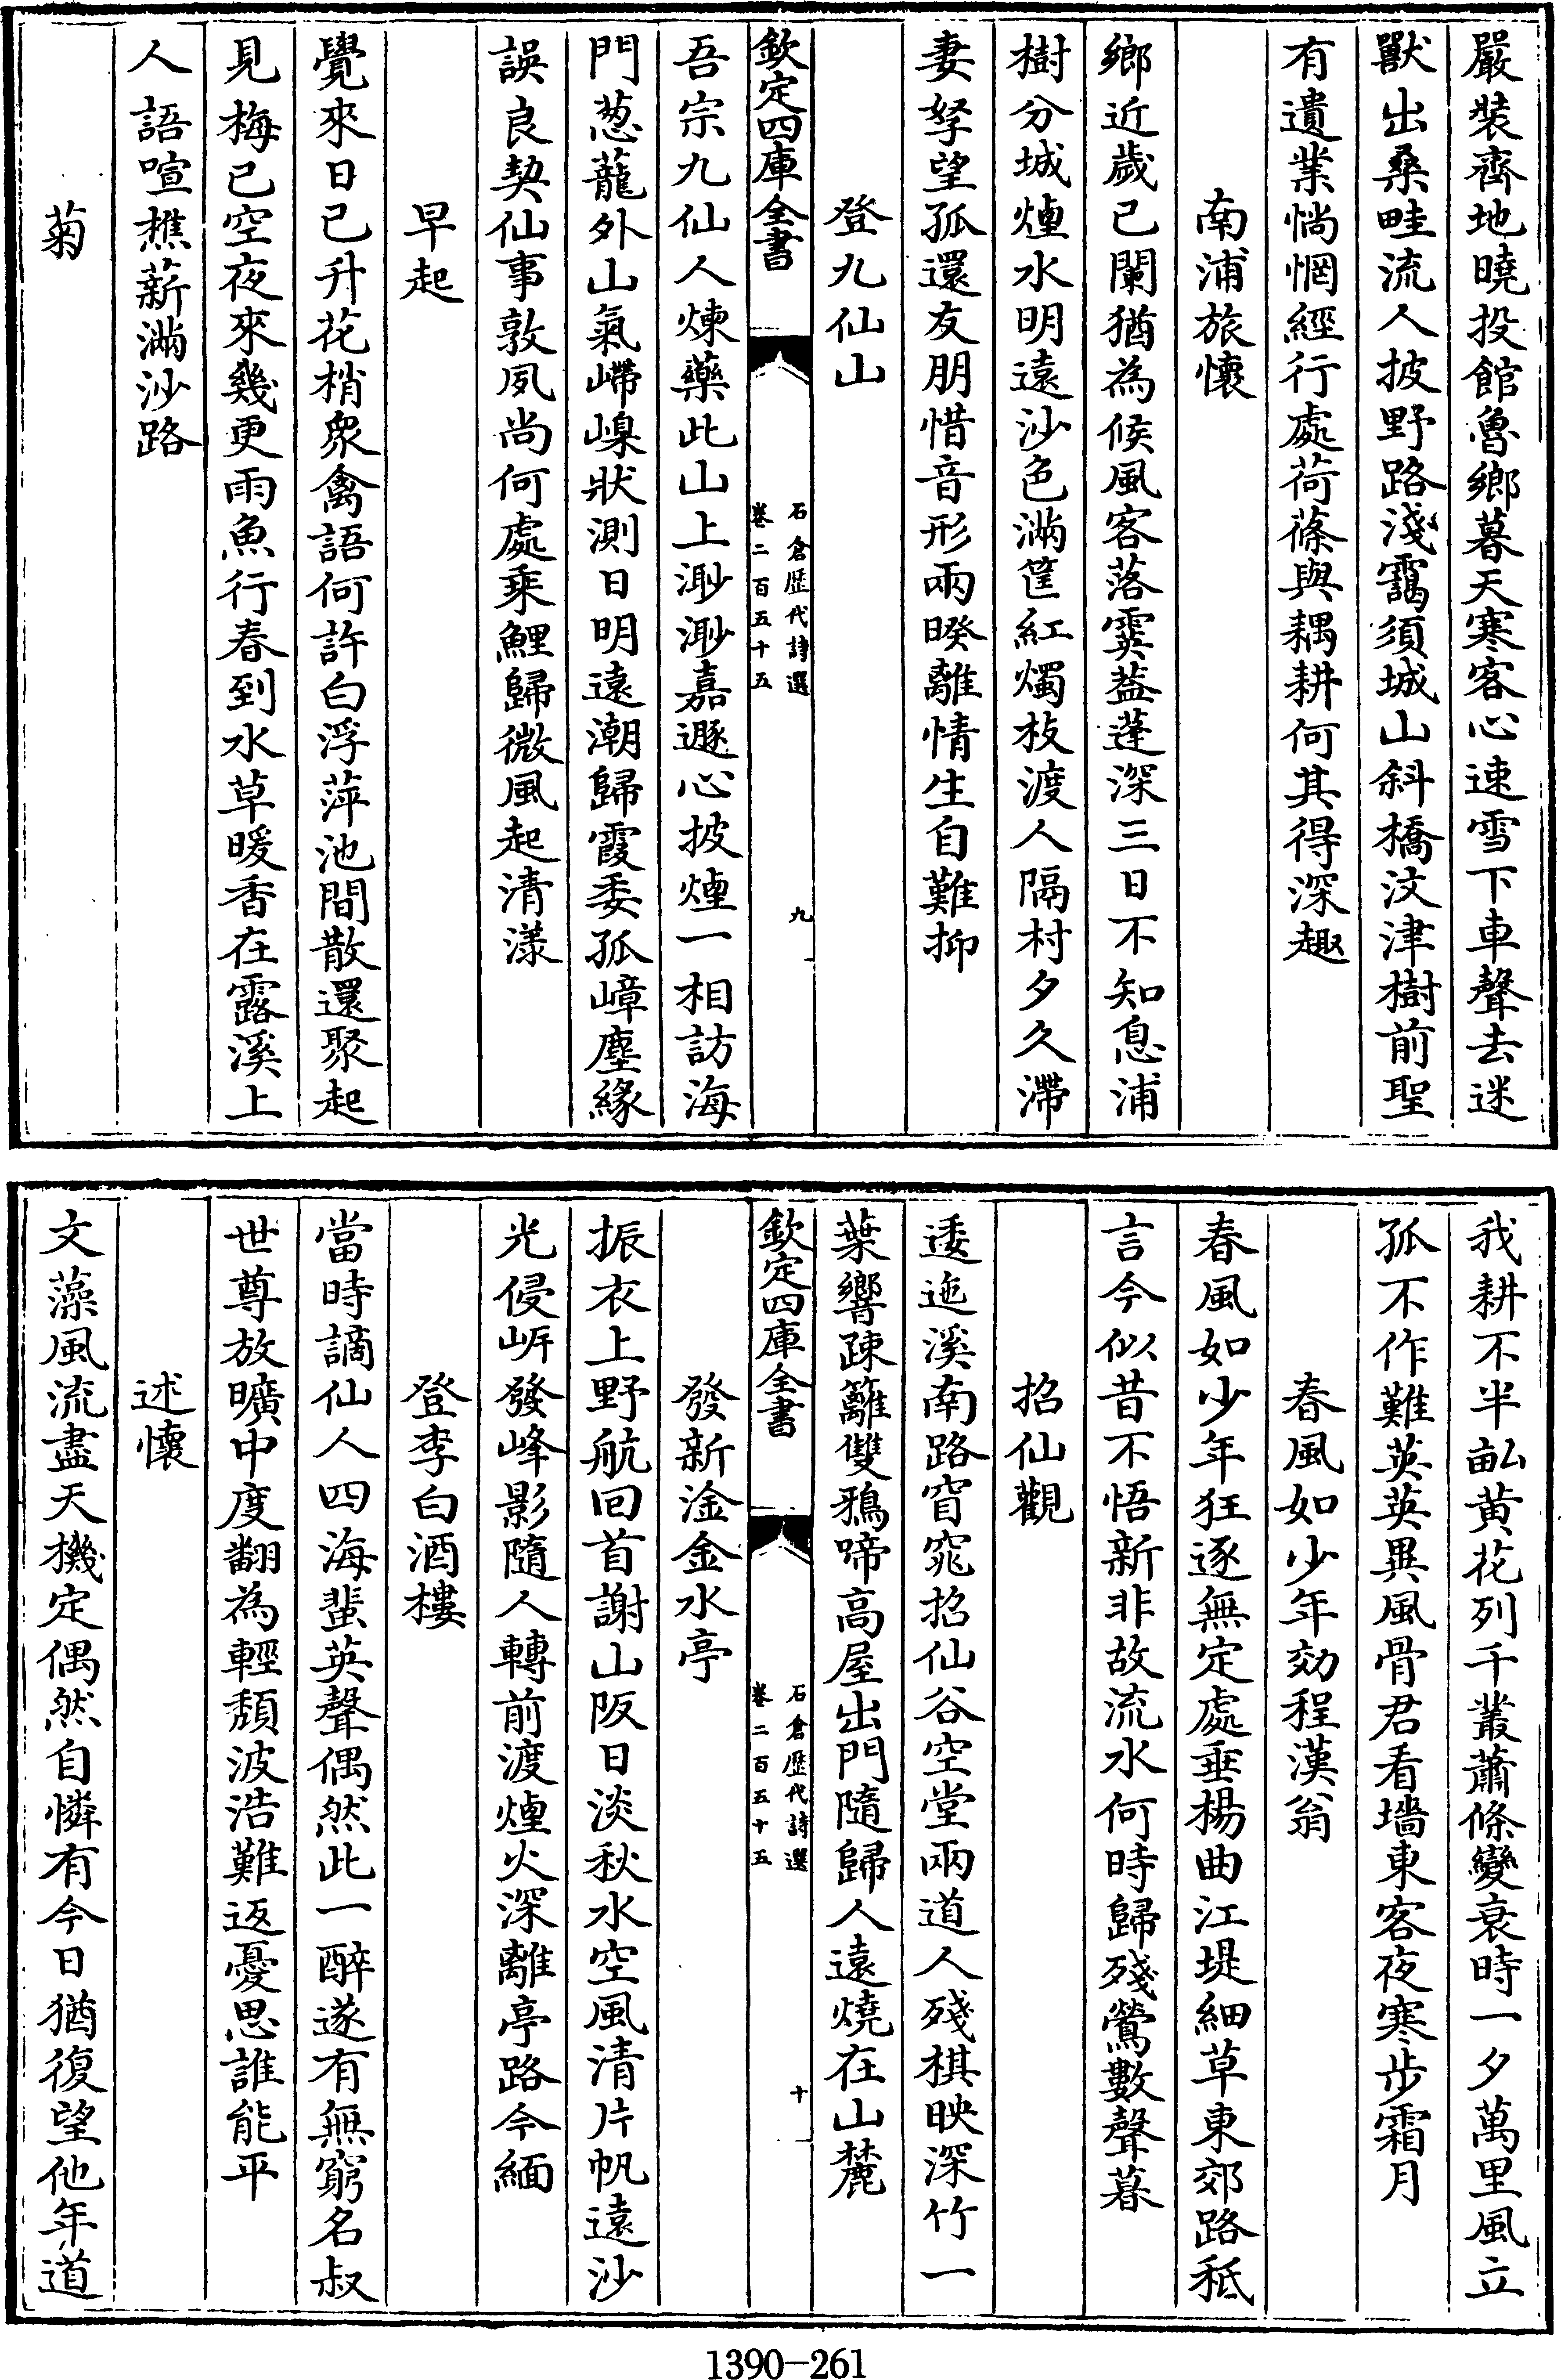 嚴裝齊地曉投館魯鄉暮天寒客心速雪下車聲去迷
獸出桑畦流人披野路淺靄須城山斜橋汶津樹前聖
有遺業惝惘經行處荷蓧與耦耕何其得深趣
南浦旅懷
鄉近歲已闌猶為候風客落霙蓋蓬深三日不知息浦
樹分城煙水明遠沙色滿篋紅燭枝渡人隔村夕久滯
妻孥望孤還友朋惜音形兩暌離情生自難抑
登九仙山
欽定四庫全書
石倉歷代詩選
卷二百五十五
九
吾宗九仙人煉藥此山上渺渺嘉遯心披煙一相訪海
門葱蘢外山氣嵽嵲狀測日明遠潮歸霞委孤嶂塵緣
誤良契仙事敦夙尚何處乘鯉歸微風起清漾
早起
覺來日已升花梢衆禽語何許白浮萍池間散還聚起
見梅已空夜來幾更雨魚行春到水草暖香在露溪上
人語喧樵薪滿沙路
菊
我耕不半畆黄花列千叢蕭條變衰時一夕萬里風立
孤不作難英英異風骨君看墻東客夜寒步霜月
春風如少年効程漢翁
春風如少年狂逐無定處垂楊曲江堤細草東郊路秪
言今似昔不悟新非故流水何時歸殘鶯數聲暮
招仙觀
逶迤溪南路窅窕招仙谷空堂兩道人殘棋映深竹一
葉響疎籬雙鴉啼高屋出門隨歸人遠燒在山麓
欽定四庫全書
石倉歷代詩選
卷二百五十五
十
發新淦金水亭
振衣上野航回首謝山阪日淡秋水空風清片帆遠沙
光侵岍發峰影隨人轉前渡煙火深離亭路今緬
登李白酒樓
當時謫仙人四海蜚英聲偶然此一醉遂有無窮名叔
世尊放曠中度翻為輕頹波浩難返憂思誰能平
述懷
文藻風流盡天機定偶然自憐有今日猶復望他年道
1390-261